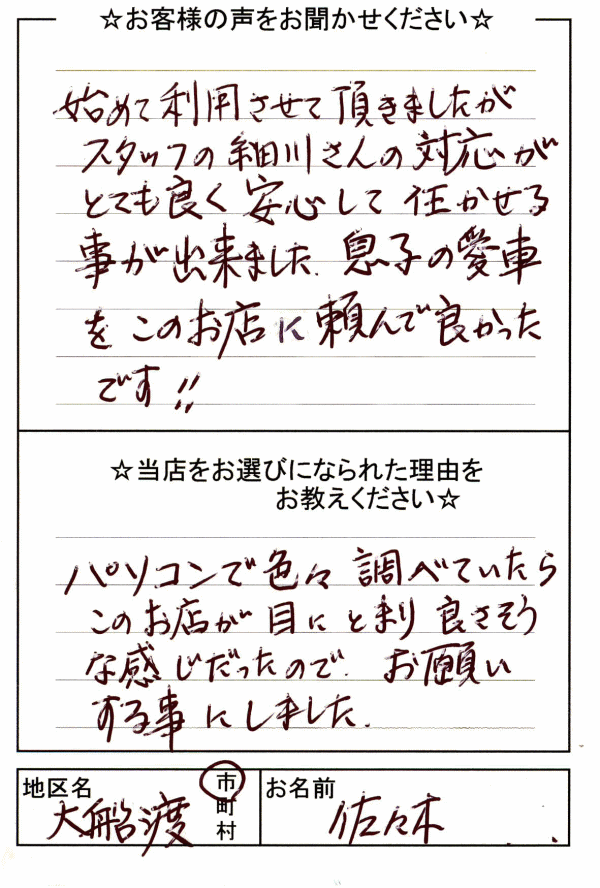 ☆お客様の声をお聞かせください☆
始めて利用させて頂きましたが
スタッフの細川さんの対応が
とても良く安心して任かせる
事が出来ました。息子の愛車
をこのお店に頼んで良かった
です!!
☆当店をお選びになられた理由を
お教えください☆
パソコンで色々調べていたら
このお店が目にとまり良さそう
な感じだったので、お願い
する事にしました。
地区名 大船渡 市
町
村
お名前 佐々木